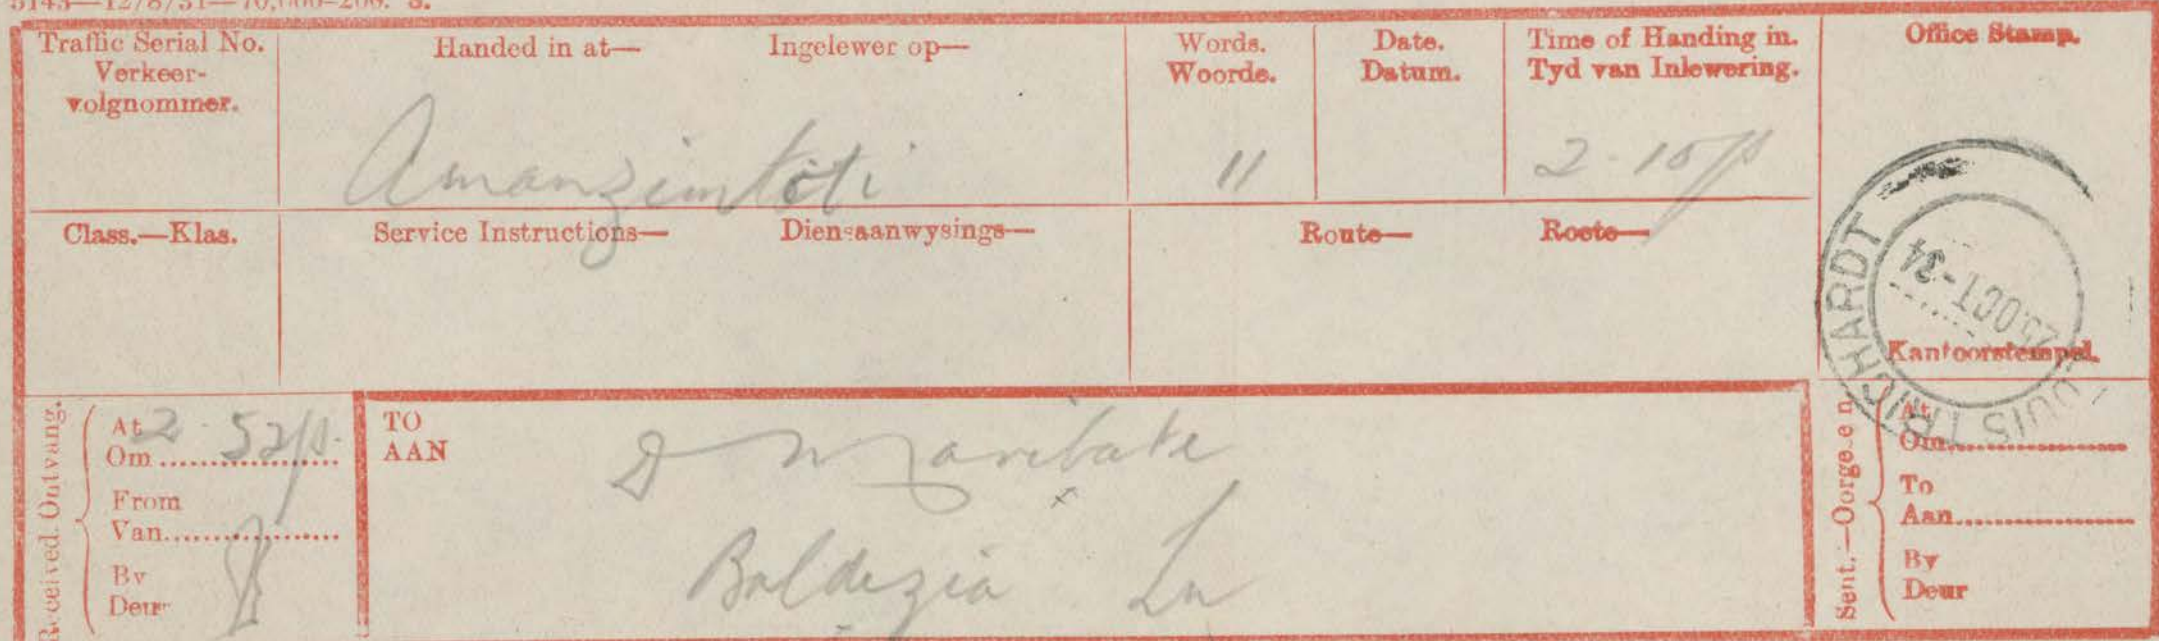 5143—12/8/31—70,000-200. S.
Traffic Serial No.
Verkeer-
volgnommer.
Handed in at— Ingelewer op—
Amanzimtoti
Words.
Woorde.
11
Date.
Datum.
Time of Handing in.
Tyd van Inlewering.
2-15/p
Office Stamp.
Kantoorstempel.
LOUIS TRICHARDT
25 OCT-34
Class.—Klas.
Service Instructions— Diensaanwysings—
Route— Roete—
Received. Ontvang.
At
Om 2-52/p.
From
Van
By
Deur
TO
AAN
D Maribate
Boldezia Ln
Sent.—Oorgesein.
At
Om
To
Aan
By
Deur